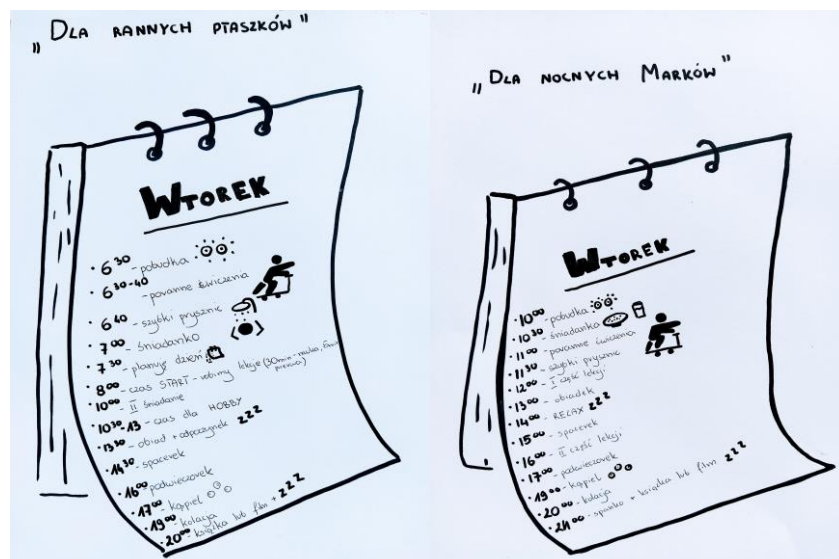 „Dla rannych ptaszków"
Wtorek
• 6³⁰ - pobudka
• 6³⁰⁻⁴⁰ - poranne ćwiczenia
• 6⁴⁰ - szybki prysznic
• 7⁰⁰ - śniadanko
• 7³⁰ - planuję dzień
• 8⁰⁰ - czas START - robimy lekcje (30min - nauka, 5min
przerwa)
• 10⁰⁰ - II śniadanie
• 10³⁰-13 - czas dla HOBBY
• 13³⁰ - obiad + odpoczynek zzz
• 14³⁰ - spacerek
• 16⁰⁰ podwieczorek
• 17⁰⁰ - kąpiel
• 19⁰⁰ - kolacja
• 20⁰⁰ - książka lub film + zzz
„Dla nocnych Marków"
Wtorek
• 10⁰⁰ - pobudka
• 10³⁰ - śniadanko
• 11⁰⁰ - poranne ćwiczenia
• 11³⁰ - szybki prysznic
• 12⁰⁰ - I część lekcji
• 13⁰⁰ - obiadek
• 14⁰⁰ - RELAX zzz
• 15⁰⁰ - spacerek
• 16⁰⁰ - II część lekcji
• 17⁰⁰ - podwieczorek
• 19⁰⁰ - kąpiel
• 20⁰⁰ - kolacja
• 24⁰⁰ - spanko + książka lub film zzz